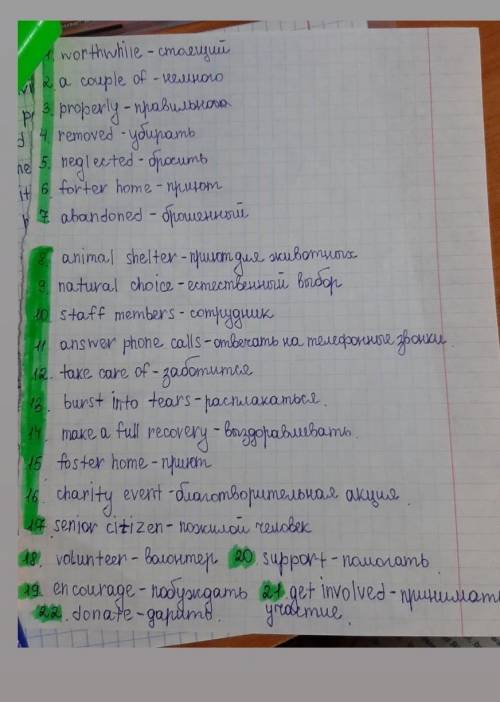 1. worthwhile - стоящий
2. a couple of - немного
3. properly - правильного
4. removed - убирать
5. neglected - бросить
6. forter home - приют
7. abandoned - брошенный
8. animal shelter - приют для животных
9. natural choice - естественный выбор
10. staff members - сотрудник
11. answer phone calls - отвечать на телефонные звонки.
12. take care of - заботится
13. burst into tears - расплакаться.
14. make a full recovery - выздоравливать.
15. foster home - приют
16. charity event - благотворительная акция.
17. senior citizen - пожилой человек
18. volunteer - волонтер 20 support - помогать.
19. encourage - побуждать 21. get involved - принимать
22. donate - дарить. участие.